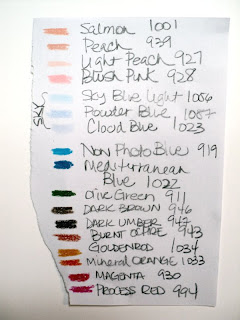 Salmon 1001
Peach 939
Light Peach 927
Blush Pink 928
SKY
Sky Blue Light 1086
Powder Blue 1087
Cloud Blue 1023
Non Photo Blue 919
Mediterranean
Blue 1022
Olive Green 911
DARK BROWN 946
DARK UMBER 947
BURNT OCHRE 943
GOLDENROD 1034
Mineral ORANGE 1033
MAGENTA 930
PROCESS RED 994